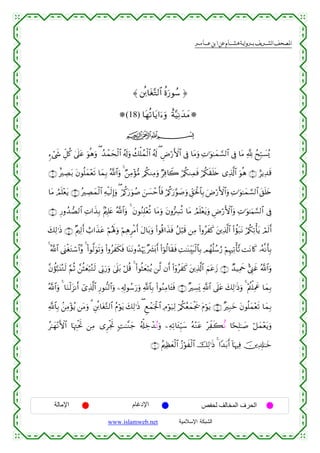 المصحف الشريف برواية هشام عن ابن عامر
﴿ سُورَةُ ٱلتَّغَابُنِ ﴾
*مَدَنِيَّةٌ وَءَايَاتُهَا (18)*
بِسْمِ ٱللَّهِ ٱلرَّحْمَٰنِ ٱلرَّحِيمِ
يُسَبِّحُ لِلَّهِ مَا فِي ٱلسَّمَٰوَٰتِ وَمَا فِي ٱلْأَرْضِ ۖ لَهُ ٱلْمُلْكُ وَلَهُ ٱلْحَمْدُ ۖ وَهُوَ عَلَىٰ كُلِّ شَيْءٍ
قَدِيرٌ ۝ هُوَ ٱلَّذِي خَلَقَكُمْ فَمِنكُمْ كَافِرٌ وَمِنكُم مُّؤْمِنٌ ۚ وَٱللَّهُ بِمَا تَعْمَلُونَ بَصِيرٌ ۝
خَلَقَ ٱلسَّمَٰوَٰتِ وَٱلْأَرْضَ بِٱلْحَقِّ وَصَوَّرَكُمْ فَأَحْسَنَ صُوَرَكُمْ ۖ وَإِلَيْهِ ٱلْمَصِيرُ ۝ يَعْلَمُ مَا
فِي ٱلسَّمَٰوَٰتِ وَٱلْأَرْضِ وَيَعْلَمُ مَا تُسِرُّونَ وَمَا تُعْلِنُونَ ۚ وَٱللَّهُ عَلِيمٌۢ بِذَاتِ ٱلصُّدُورِ ۝
أَلَمْ يَأْتِكُمْ نَبَؤُا۟ ٱلَّذِينَ كَفَرُوا۟ مِن قَبْلُ فَذَاقُوا۟ وَبَالَ أَمْرِهِمْ وَلَهُمْ عَذَابٌ أَلِيمٌ ۝ ذَٰلِكَ
بِأَنَّهُۥ كَانَت تَّأْتِيهِمْ رُسُلُهُم بِٱلْبَيِّنَٰتِ فَقَالُوٓا۟ أَبَشَرٌ يَهْدُونَنَا فَكَفَرُوا۟ وَتَوَلَّوا۟ ۚ وَّٱسْتَغْنَى ٱللَّهُ ۚ
وَٱللَّهُ غَنِيٌّ حَمِيدٌ ۝ زَعَمَ ٱلَّذِينَ كَفَرُوٓا۟ أَن لَّن يُبْعَثُوا۟ ۚ قُلْ بَلَىٰ وَرَبِّي لَتُبْعَثُنَّ ثُمَّ لَتُنَبَّؤُنَّ
بِمَا عَمِلْتُمْ ۚ وَذَٰلِكَ عَلَى ٱللَّهِ يَسِيرٌ ۝ فَـَٔامِنُوا۟ بِٱللَّهِ وَرَسُولِهِۦ وَٱلنُّورِ ٱلَّذِيٓ أَنزَلْنَا ۚ وَٱللَّهُ
بِمَا تَعْمَلُونَ خَبِيرٌ ۝ يَوْمَ يَجْمَعُكُمْ لِيَوْمِ ٱلْجَمْعِ ۖ ذَٰلِكَ يَوْمُ ٱلتَّغَابُنِ ۗ وَمَن يُؤْمِنۢ بِٱللَّهِ
وَيَعْمَلْ صَٰلِحًا نُكَفِّرْ عَنْهُ سَيِّـَٔاتِهِۦ وَنُدْخِلْهُ جَنَّٰتٍ تَجْرِي مِن تَحْتِهَا ٱلْأَنْهَٰرُ
خَٰلِدِينَ فِيهَآ أَبَدًا ۚ ذَٰلِكَ ٱلْفَوْزُ ٱلْعَظِيمُ ۝
الحرف المخالف لحفص الإدغام الإمالة
الشبكة الإسلامية www.islamweb.net